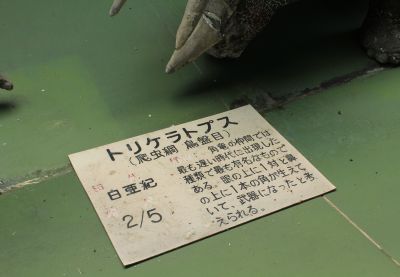 トリケラトプス
(爬虫綱 鳥盤目)
白亜紀
2/5
角竜の仲間では
最も遅い時代に出現した
種類で最も有名なもので
ある。眼の上に1対と鼻
の上に1本の角が生えて
いて、武器になったと考
えられる。